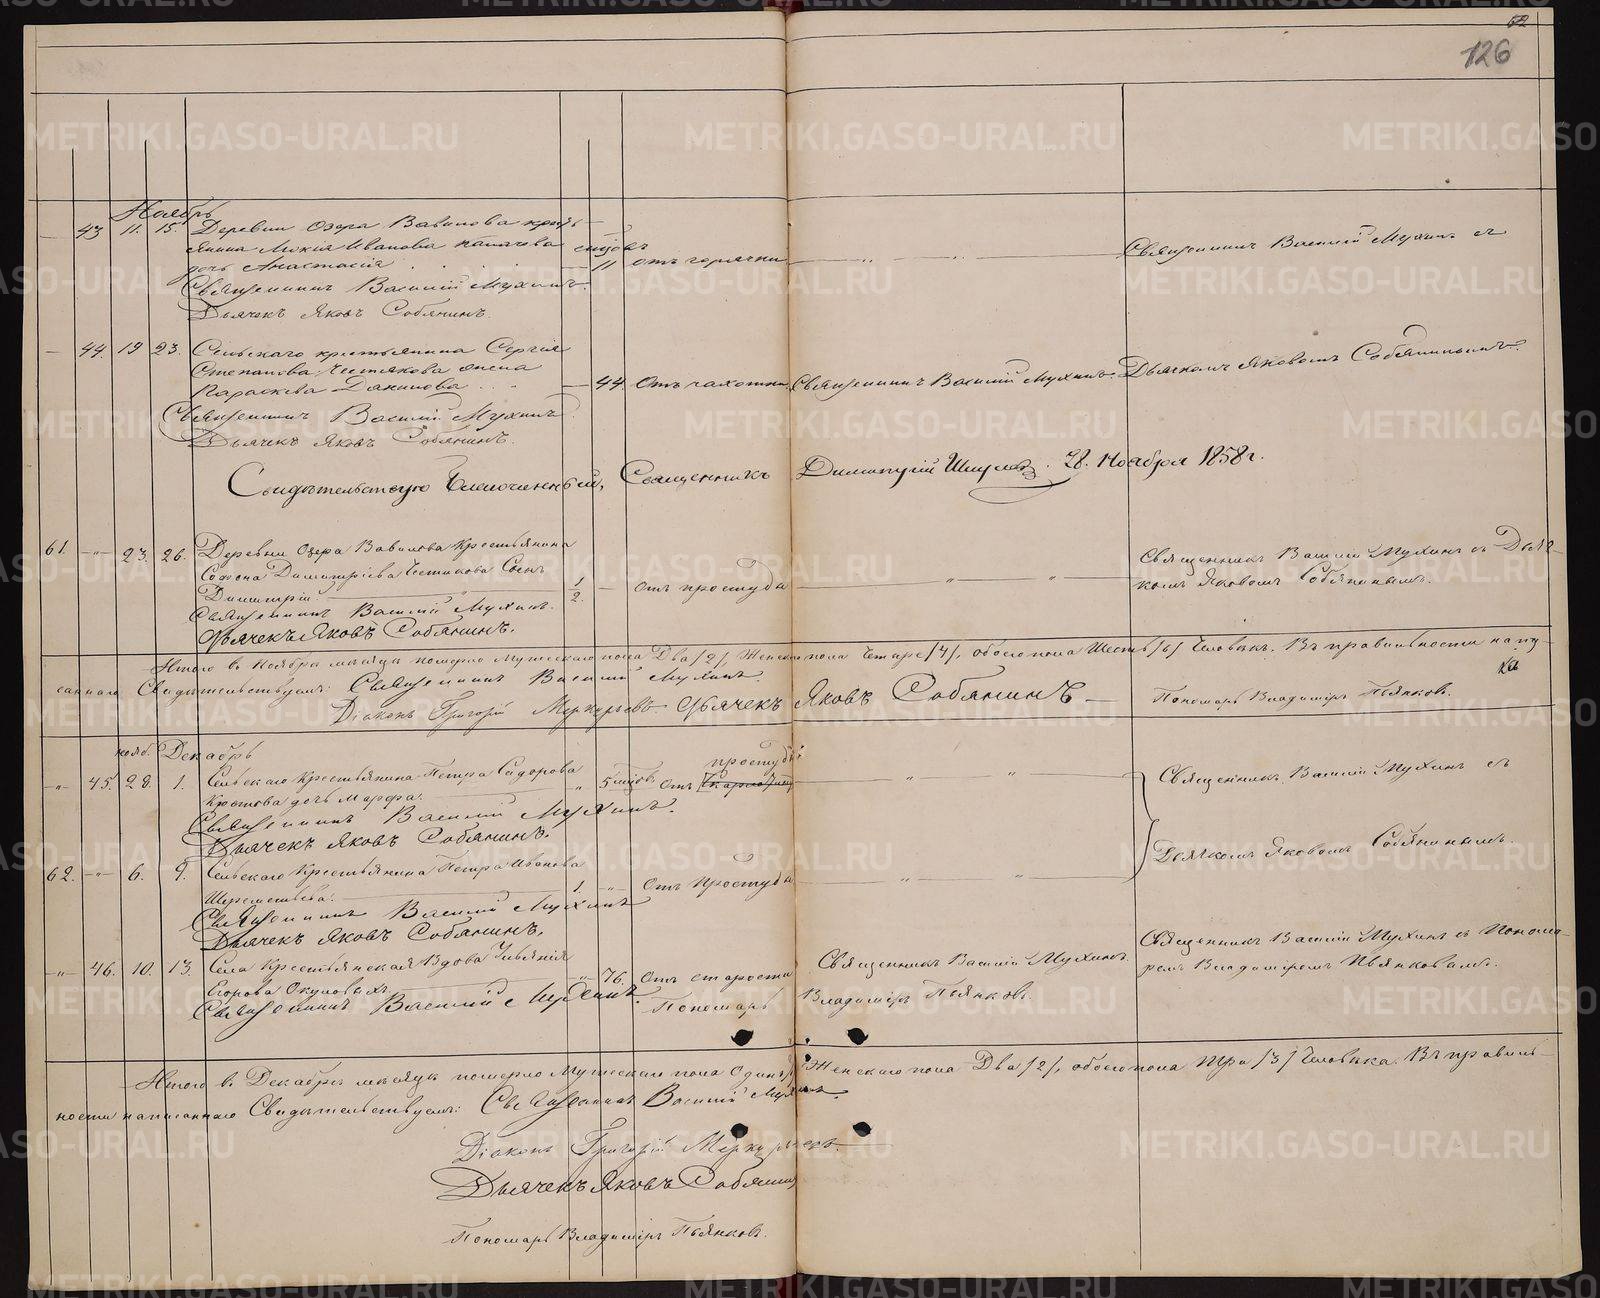 52
126
Ноябрь
43 11. 15. Деревни Озера Вавилова кресть-
янина Ивanова
дочь Анастасия 11 отъ горячки Священникъ Василий Мухинъ съ
Священникъ Василий Мухинъ
Дьячекъ Яковъ Собянинъ.
44. 19 23. Сельскаго крестьянина Сергія
Степанова Чистякова жена
Параскева 44. Отъ чахотки Священникъ Василий Мухинъ Дьячкомъ Яковомъ Собянинымъ.
Священникъ Василий Мухинъ
Дьячекъ Яковъ Собянинъ.
Свидѣтельствую Благочинный, Священникъ Димитрій 28. Ноября 1858 г.
61. 23. 26. Деревни Озера Вавилова Крестьянина
Димитріева Чистякова Сынъ
Димитрій 1/2. отъ простуды Священникъ Василий Мухинъ съ Дьяч-
комъ Яковомъ Собянинымъ.
Священникъ Василий Мухинъ.
Дьячекъ Яковъ Собянинъ.
Итого въ Ноябрѣ мѣсяцѣ померло Мужескаго пола Два /2/, Женскаго пола Четыре /4/, обоего пола Шесть /6/ Человѣкъ. Въ правильности напи-
саннаго Свидѣтельствуемъ: Священникъ Василий Мухинъ.
Діаконъ Григорій Меркурьевъ Дьячекъ Яковъ Собянинъ Пономарь Владиміръ Пьянковъ.
нояб. Декабрь
45. 28. 1. Сельскаго Крестьянина Петра Сидорова
дочь Марфа. 5 отъ простуды Священникъ Василий Мухинъ съ
Священникъ Василий Мухинъ.
Дьячекъ Яковъ Собянинъ.
Дьячкомъ Яковомъ Собянинымъ.
62. 6. 9. Сельскаго Крестьянина Петра Иванова
1. Отъ Простуды
Священникъ Василий Мухинъ
Дьячекъ Яковъ Собянинъ.
46. 10. 13. Села Крестьянская Вдова Ульянія
Егорова Окуловыхъ 76. Отъ старости Священникъ Василий Мухинъ. Священникъ Василий Мухинъ съ Понома-
ремъ Владиміромъ Пьянковымъ.
Священникъ Василий Мухинъ. Пономарь Владиміръ Пьянковъ.
Итого въ Декабрѣ мѣсяцѣ померло Мужескаго пола Одинъ Женскаго пола Два /2/, обоего пола Три /3/ Человѣка. Въ правиль-
ности написаннаго Свидѣтельствуемъ: Священникъ Василий Мухинъ.
Діаконъ Григорій Меркурьевъ.
Дьячекъ Яковъ Собянинъ
Пономарь Владиміръ Пьянковъ.
METRIKI.GASO-URAL.RU